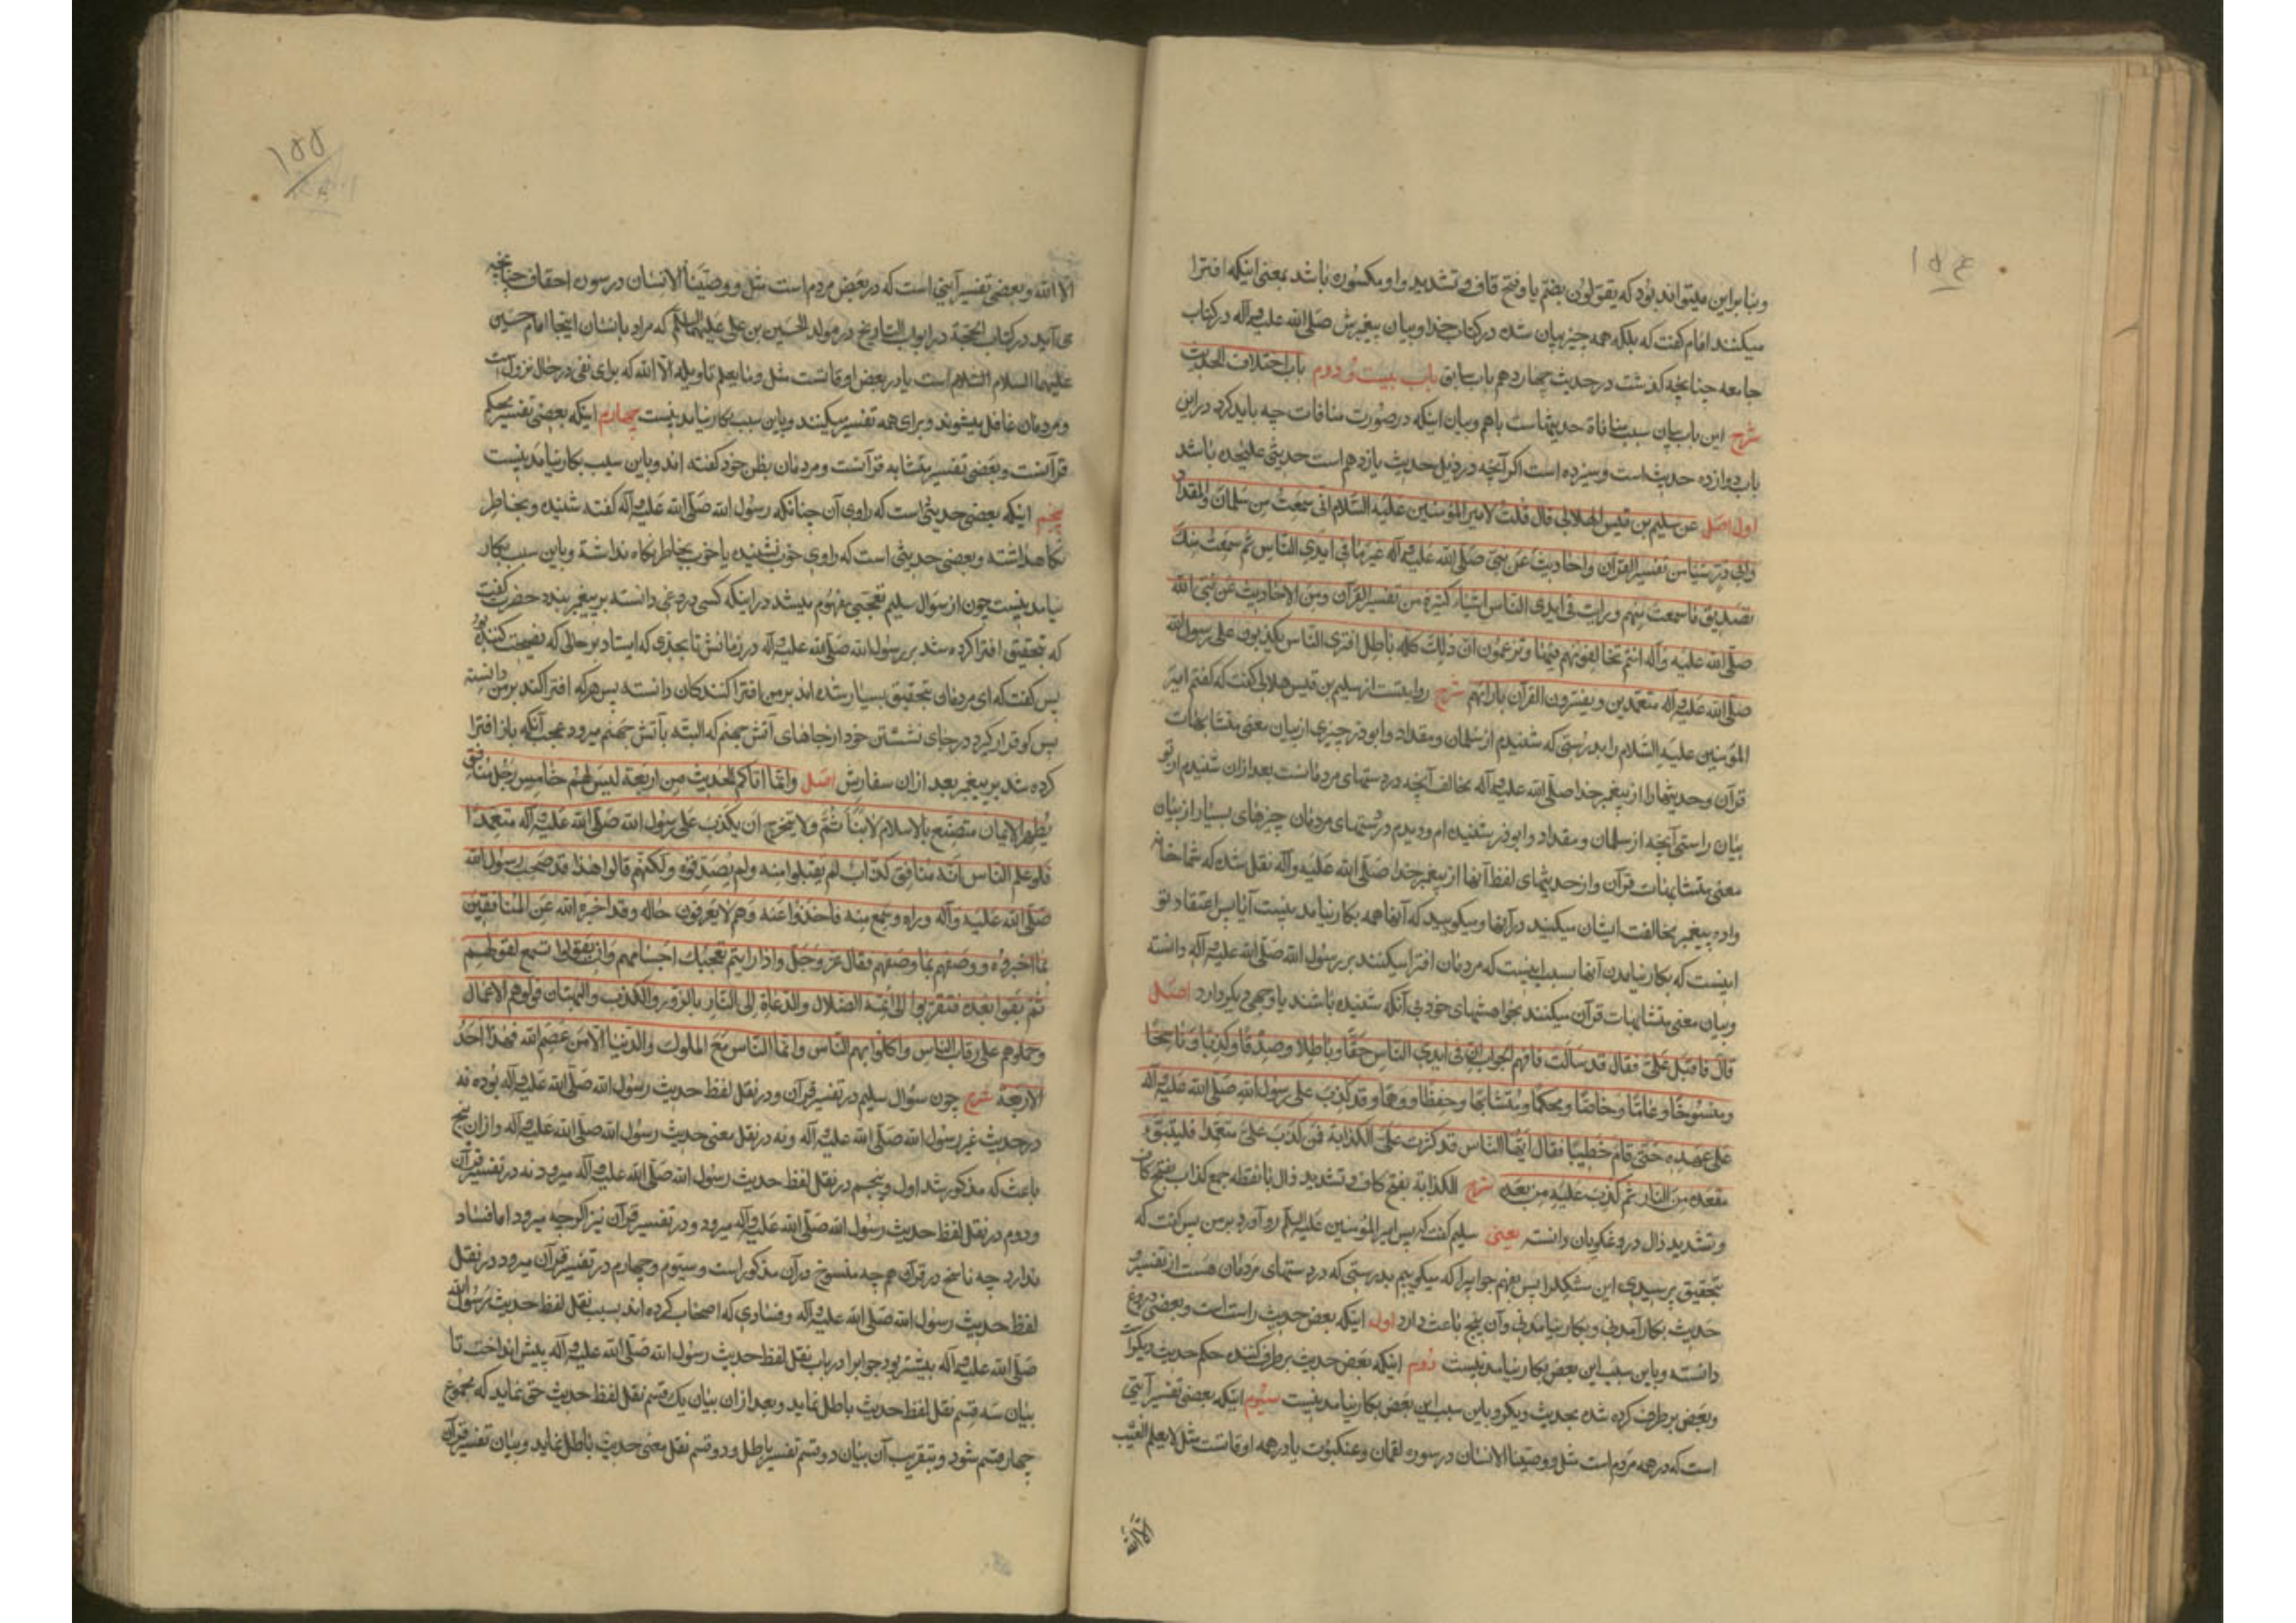 ۱۵۴
وبنا براین میتواند بود که یقولون بضم یا وفتح قاف و تشدید واو مکسوره باشد بمعنی اینکه افترا
میکنند امام گفت که بلکه همه چیز بیان شده در کتاب خدا وبیان پیغمبرش صلی الله علیه وآله در کتاب
جامعه چنانچه گذشت در حدیث چهاردهم باب سابق باب بیست و دوم باب اختلاف الحدیث
شرح این باب بیان سبب منافاة حدیثهاست باهم وبیان اینکه در صورت منافات چه باید کرد در این
باب دوازده حدیث است وسیزده است اگر آنچه در ذیل حدیث یازدهم است حدیثی علیحده باشد
اول اصل عن سلیم بن قیس الهلالی قال قلت لامیر المؤمنین علیه السلام انی سمعت من سلمان والمقداد
وابی ذر شیئا من تفسیر القرآن واحادیث عن نبی صلی الله علیه وآله غیر ما فی ایدی الناس ثم سمعت منک
تصدیق ما سمعت منهم ورایت فی ایدی الناس اشیاء کثیرة من تفسیر القرآن ومن الاحادیث عن نبی الله
صلی الله علیه وآله انتم تخالفونهم فیها وتزعمون ان ذلک کله باطل افتری الناس یکذبون علی رسول الله
صلی الله علیه وآله متعمدین ویفسرون القرآن بارائهم شرح روایتست از سلیم بن قیس هلالی گفت که گفتم امیر
المؤمنین علیه السلام را بدرستی که شنیدم از سلمان ومقداد وابوذر چیزی از بیان معنی متشابهات
قرآن وحدیثها را از پیغمبر خدا صلی الله علیه وآله مخالف آنچه در دستهای مردمانست بعد ازان شنیدم از تو
بیان راستی آنچه از سلمان ومقداد وابوذر شنیده ام ودیدم در دستهای مردمان چیزهای بسیار از بیان
معنی متشابهات قرآن واز حدیثهای لفظ آنها از پیغمبر خدا صلی الله علیه وآله نقل شده که شما خانه
واده پیغمبر مخالفت ایشان میکنید در آنها ومیگویید که آنها همه بکار نیامدنیست آیا پس اعتقاد تو
اینست که بکار نیامدن آنها بسبب اینست که مردمان افترا میکنند بر رسول الله صلی الله علیه وآله دانسته
وبیان معنی متشابهات قرآن میکنند بخواهشهای خود بی آنکه شنیده باشند یا وجهی دیگر دارد اصل
قال فاقبل علی فقال قد سالت فافهم الجواب ان فی ایدی الناس حقا وباطلا وصدقا وکذبا وناسخا
ومنسوخا وعاما وخاصا ومحکما ومتشابها وحفظا ووهما وقد کذب علی رسول الله صلی الله علیه وآله
علی عهده حتی قام خطیبا فقال ایها الناس قد کثرت علی الکذابة فمن کذب علی متعمدا فلیتبوء
مقعده من النار ثم کذب علیه من بعده شرح الکذابة بفتح کاف وتشدید ذال بانقطه جمع کذاب بفتح کاف
وتشدید ذال دروغگویان دانسته یعنی سلیم گفت که پس امیر المؤمنین علیه السلام رو آورد بر من پس گفت که
بتحقیق پرسیدی این مشکل را پس بفهم جواب را که میگوییم بدرستی که در دستهای مردمان هست از تفسیر و
حدیث بکار آمدنی وبکار نیامدنی وآن پنج باعث دارد اول اینکه بعض حدیث راست است وبعضی دروغ
دانسته وباین سبب این بعض بکار نیامدنیست دوم اینکه بعض حدیث برطرف کننده حکم حدیث دیگر است
وبعض برطرف کرده شده بحدیث دیگر وباین سبب این بعض بکار نیامدنیست سیوم اینکه بعضی تفسیر آیتی
است که در همه مردم است مثل ووصینا الانسان در سوره لقمان وعنکبوت یا در همه اوقاتست مثل لا یعلم الغیب
الا الله
۱۵۵
الا الله وبعضی تفسیر آیتی است که در بعض مردم است مثل ووصینا الانسان در سوره احقاف چنانچه
می آید در کتاب الحجة در ابواب التاریخ در مولد الحسین بن علی علیهما السلام که مراد بانسان اینجا امام حسین
علیهما السلام السلام است یا در بعض اوقاتست مثل وما یعلم تاویله الا الله که برای نفی در حال نزول است
ومردمان غافل میشوند وبرای همه تفسیر میکنند وباین سبب بکار نیامدنیست چهارم اینکه بعضی تفسیر محکم
قرآنست وبعضی تفسیر متشابه قرآنست ومردمان بظن خود گفته اند وباین سبب بکار نیامدنیست
پنجم اینکه بعضی حدیثی است که راوی آن چنانکه رسول الله صلی الله علیه وآله گفته شنیده وبخاطر
نگاه داشته وبعضی حدیثی است که راوی خوب نشنیده یا خوب بخاطر نگاه نداشته وباین سبب بکار
نیامدنیست چون از سوال سلیم تعجبی مفهوم میشد در اینکه کسی دروغی دانسته بر پیغمبر بندد حضرت گفت
که بتحقیق افترا کرده شد بر رسول الله صلی الله علیه وآله در زمانش تا بحدی که ایستاد بر حالی که نصیحت کننده بود
پس گفت که ای مردمان بتحقیق بسیار شده اند بر من افترا کنندگان دانسته پس هر که افترا کند بر من دانسته
پس گو قرار گیرد در جای نشستن خود از جاهای آتش جهنم که البته بآتش جهنم میرود عجب آنکه باز افترا
کرده شد بر پیغمبر بعد ازان سفارش اصل وانما اتاکم الحدیث من اربعة لیس لهم خامس رجل منافق
یظهر الایمان متصنع بالاسلام لا یتأثم ولا یتحرج ان یکذب علی رسول الله صلی الله علیه وآله متعمدا
فلو علم الناس انه منافق کذاب لم یقبلوا منه ولم یصدقوه ولکنهم قالوا هذا قد صحب رسول الله
صلی الله علیه وآله وراه وسمع منه فاخذوا عنه وهم لا یعرفون حاله وقد اخبره الله عن المنافقین
بما اخبره ووصفهم بما وصفهم فقال عز وجل واذا رایتهم تعجبک اجسامهم وان یقولوا تسمع لقولهم
ثم بقوا بعده فتقربوا الی ائمة الضلال والدعاة الی النار بالزور والکذب والبهتان فولوهم الاعمال
وحملوهم علی رقاب الناس واکلوا بهم الناس وانما الناس مع الملوک والدنیا الا من عصم الله فهذا احد
الاربعة شرح چون سؤال سلیم در تفسیر قرآن ودر نقل لفظ حدیث رسول الله صلی الله علیه وآله بوده نه
در حدیث غیر رسول الله صلی الله علیه وآله ونه در نقل معنی حدیث رسول الله صلی الله علیه وآله وازان پنج
باعث که مذکور شد اول وپنجم در نقل لفظ حدیث رسول الله صلی الله علیه وآله میرود نه در تفسیر قرآن
ودوم در نقل لفظ حدیث رسول الله صلی الله علیه وآله میرود ودر تفسیر قرآن نیز اگرچه میرود اما فساد
ندارد چه ناسخ در قرآن هم چه منسوخ در آن مذکور است وسیوم وچهارم در تفسیر قرآن میرود در نقل
لفظ حدیث رسول الله صلی الله علیه وآله وفسادی که اصحاب کرده اند بسبب نقل لفظ حدیث رسول الله
صلی الله علیه وآله بیشتر بود جواب را در باب نقل لفظ حدیث رسول الله صلی الله علیه وآله پیش انداخت تا
بیان سه قسم نقل لفظ حدیث باطل نماید وبعد ازان بیان یک قسم نقل لفظ حدیث حق نماید که مجموع
چهار قسم شود وبتقریب آن بیان دو قسم تفسیر باطل ودو قسم نقل معنی حدیث باطل نماید وبیان تفسیر قرآن